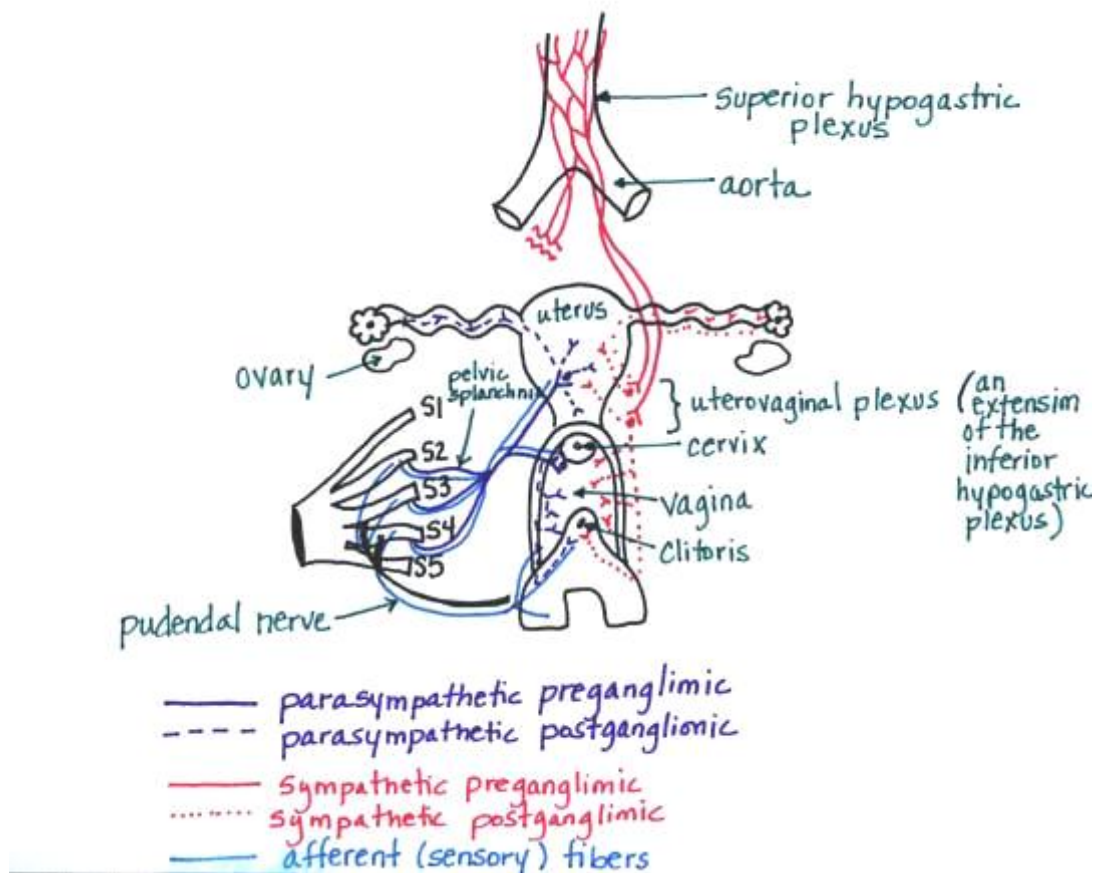 superior hypogastric
plexus
aorta
uterus
ovary
pelvic
splanchnic
S1
S2
S3
S4
S5
uterovaginal plexus (an
extension
of the
inferior
hypogastric
plexus)
cervix
vagina
clitoris
pudendal nerve
parasympathetic preganglionic
parasympathetic postganglionic
sympathetic preganglionic
sympathetic postganglionic
afferent (sensory) fibers